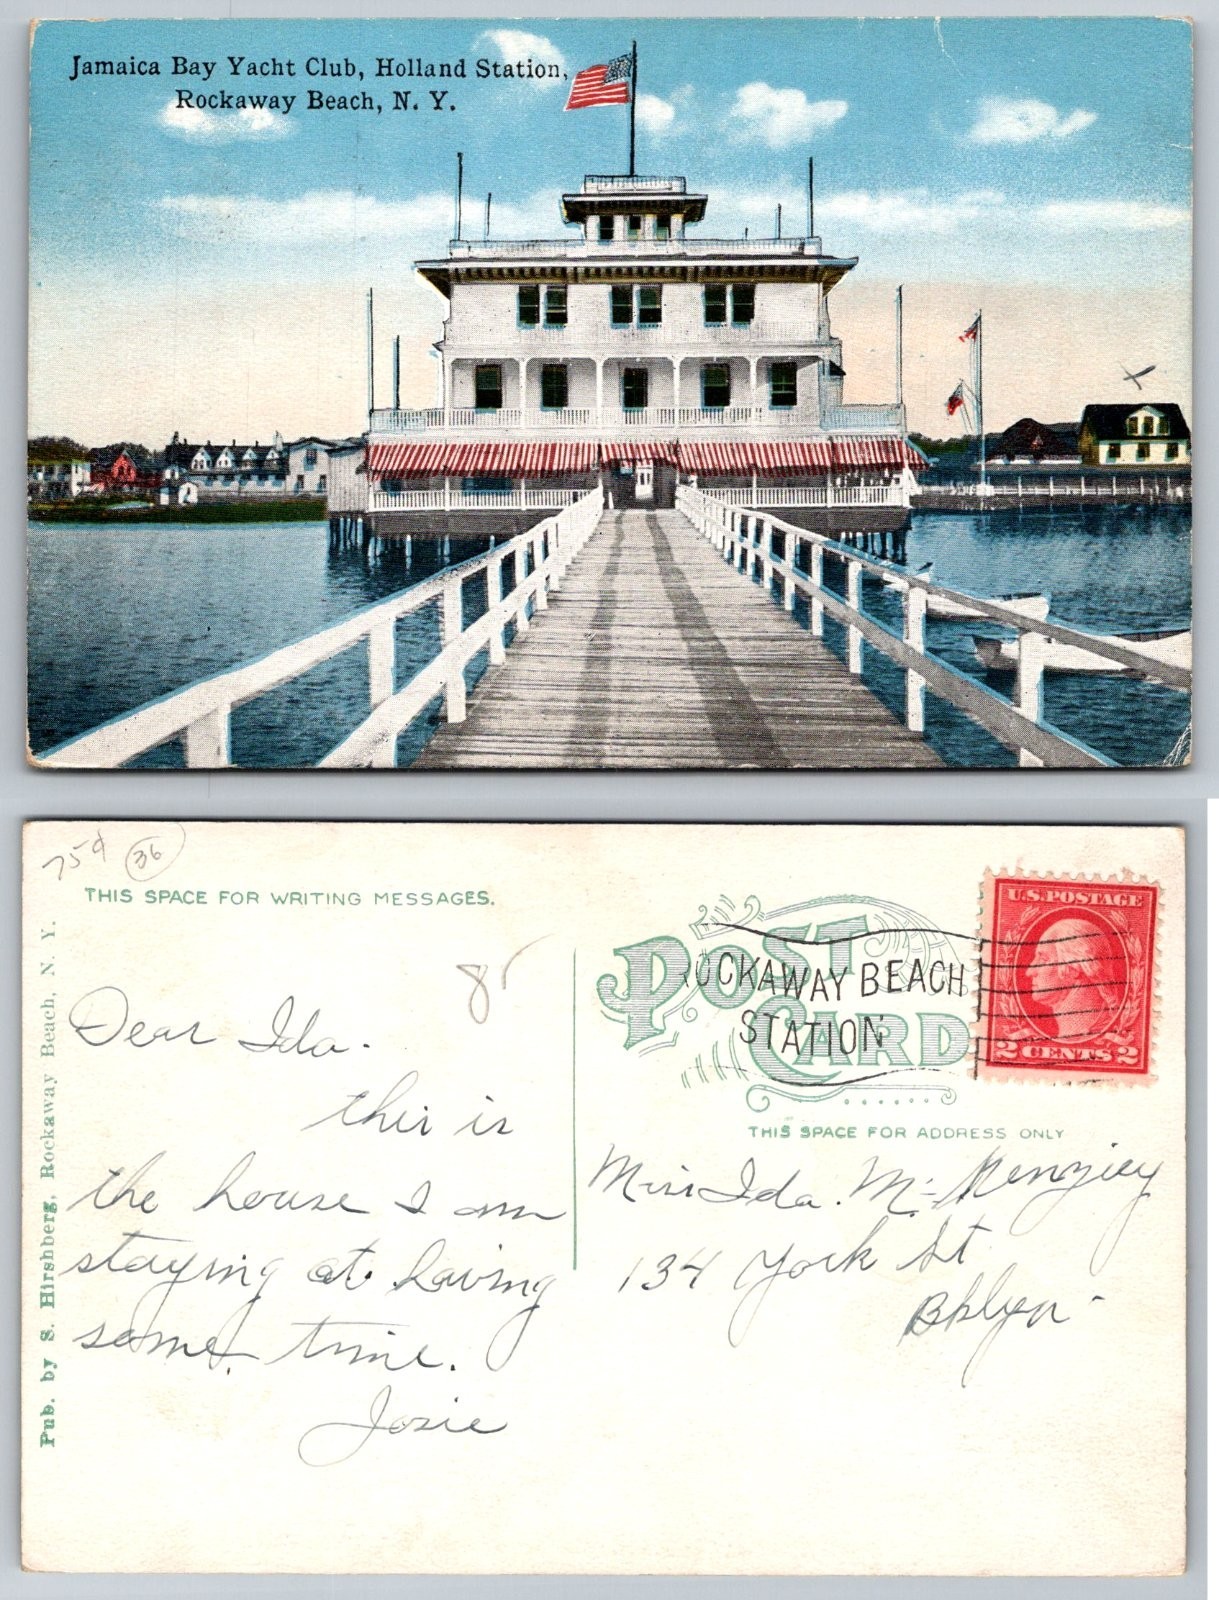 Jamaica Bay Yacht Club, Holland Station,
Rockaway Beach, N. Y.
75¢ 36
THIS SPACE FOR WRITING MESSAGES.
Pub. by S. Hirshberg, Rockaway Beach, N. Y.
85
Dear Ida.
this is
the house I am
staying at. having
some time.
Josie
POST CARD
ROCKAWAY BEACH
STATION
U.S. POSTAGE
2 CENTS 2
THIS SPACE FOR ADDRESS ONLY
Miss Ida. Mc Kenziey
134 York St
Bklyn